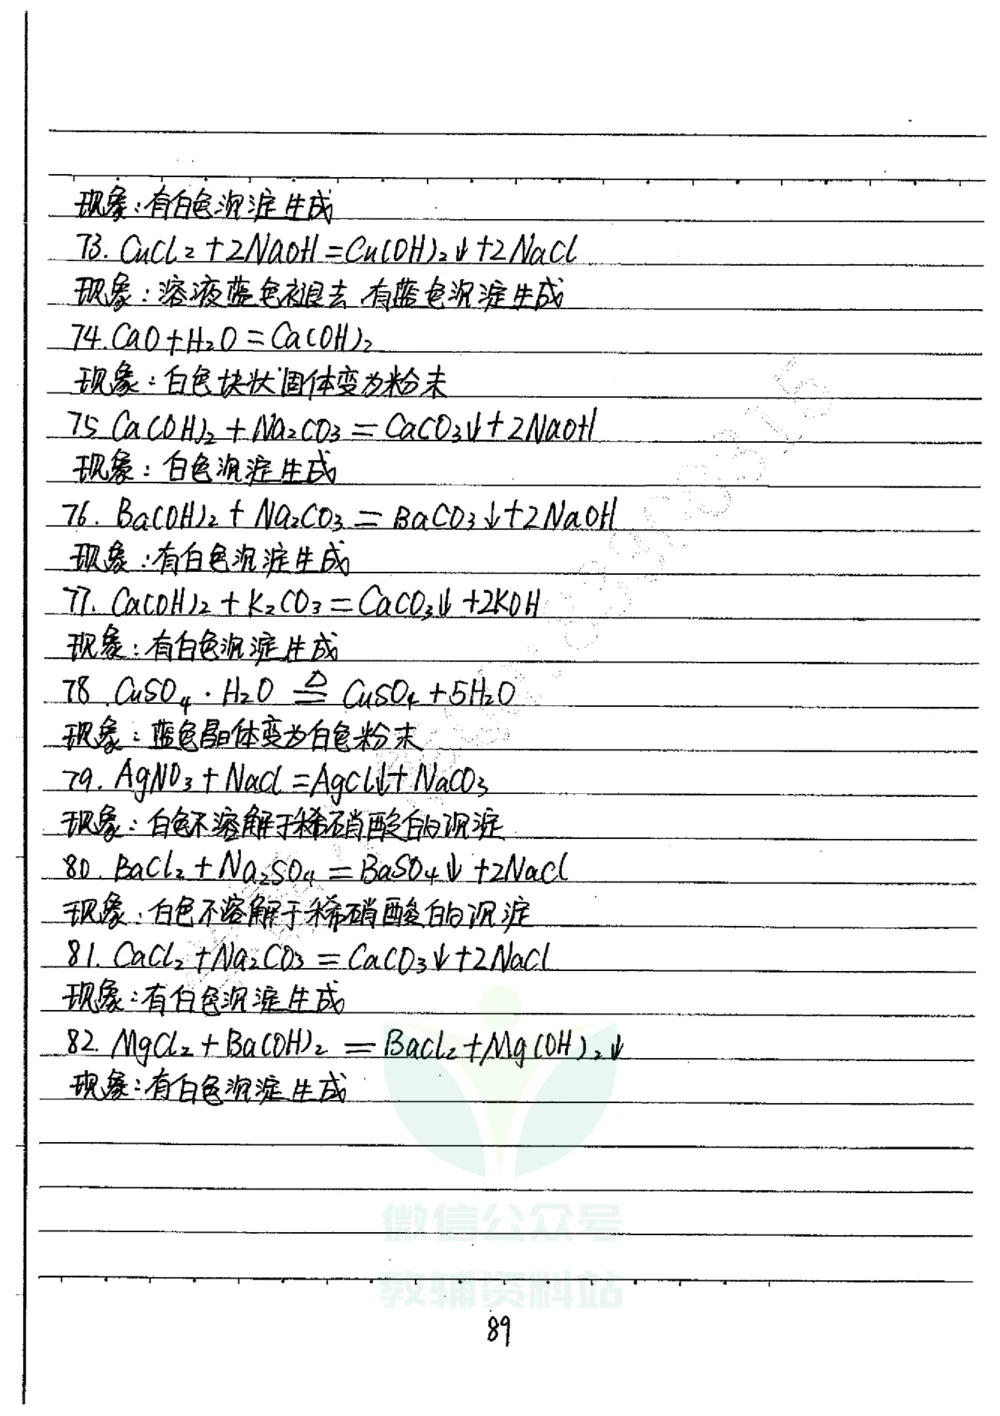 现象:有白色沉淀生成
73. CuCl₂+2NaOH=Cu(OH)₂↓+2NaCl
现象:溶液蓝色褪去,有蓝色沉淀生成
74. CaO+H₂O=Ca(OH)₂
现象:白色块状固体变为粉末
75 Ca(OH)₂+Na₂CO₃=CaCO₃↓+2NaOH
现象:白色沉淀生成
76. Ba(OH)₂+Na₂CO₃=BaCO₃↓+2NaOH
现象:有白色沉淀生成
77. Ca(OH)₂+K₂CO₃=CaCO₃↓+2KOH
现象:有白色沉淀生成
78. CuSO₄·H₂O ≜ CuSO₄+5H₂O
现象:蓝色晶体变为白色粉末
79. AgNO₃+NaCl=AgCl↓+NaCO₃
现象:白色不溶解于稀硝酸的沉淀
80. BaCl₂+Na₂SO₄=BaSO₄↓+2NaCl
现象:白色不溶解于稀硝酸的沉淀
81. CaCl₂+Na₂CO₃=CaCO₃↓+2NaCl
现象:有白色沉淀生成
82. MgCl₂+Ba(OH)₂=BaCl₂+Mg(OH)₂↓
现象:有白色沉淀生成
微信公众号
教辅资料站
89